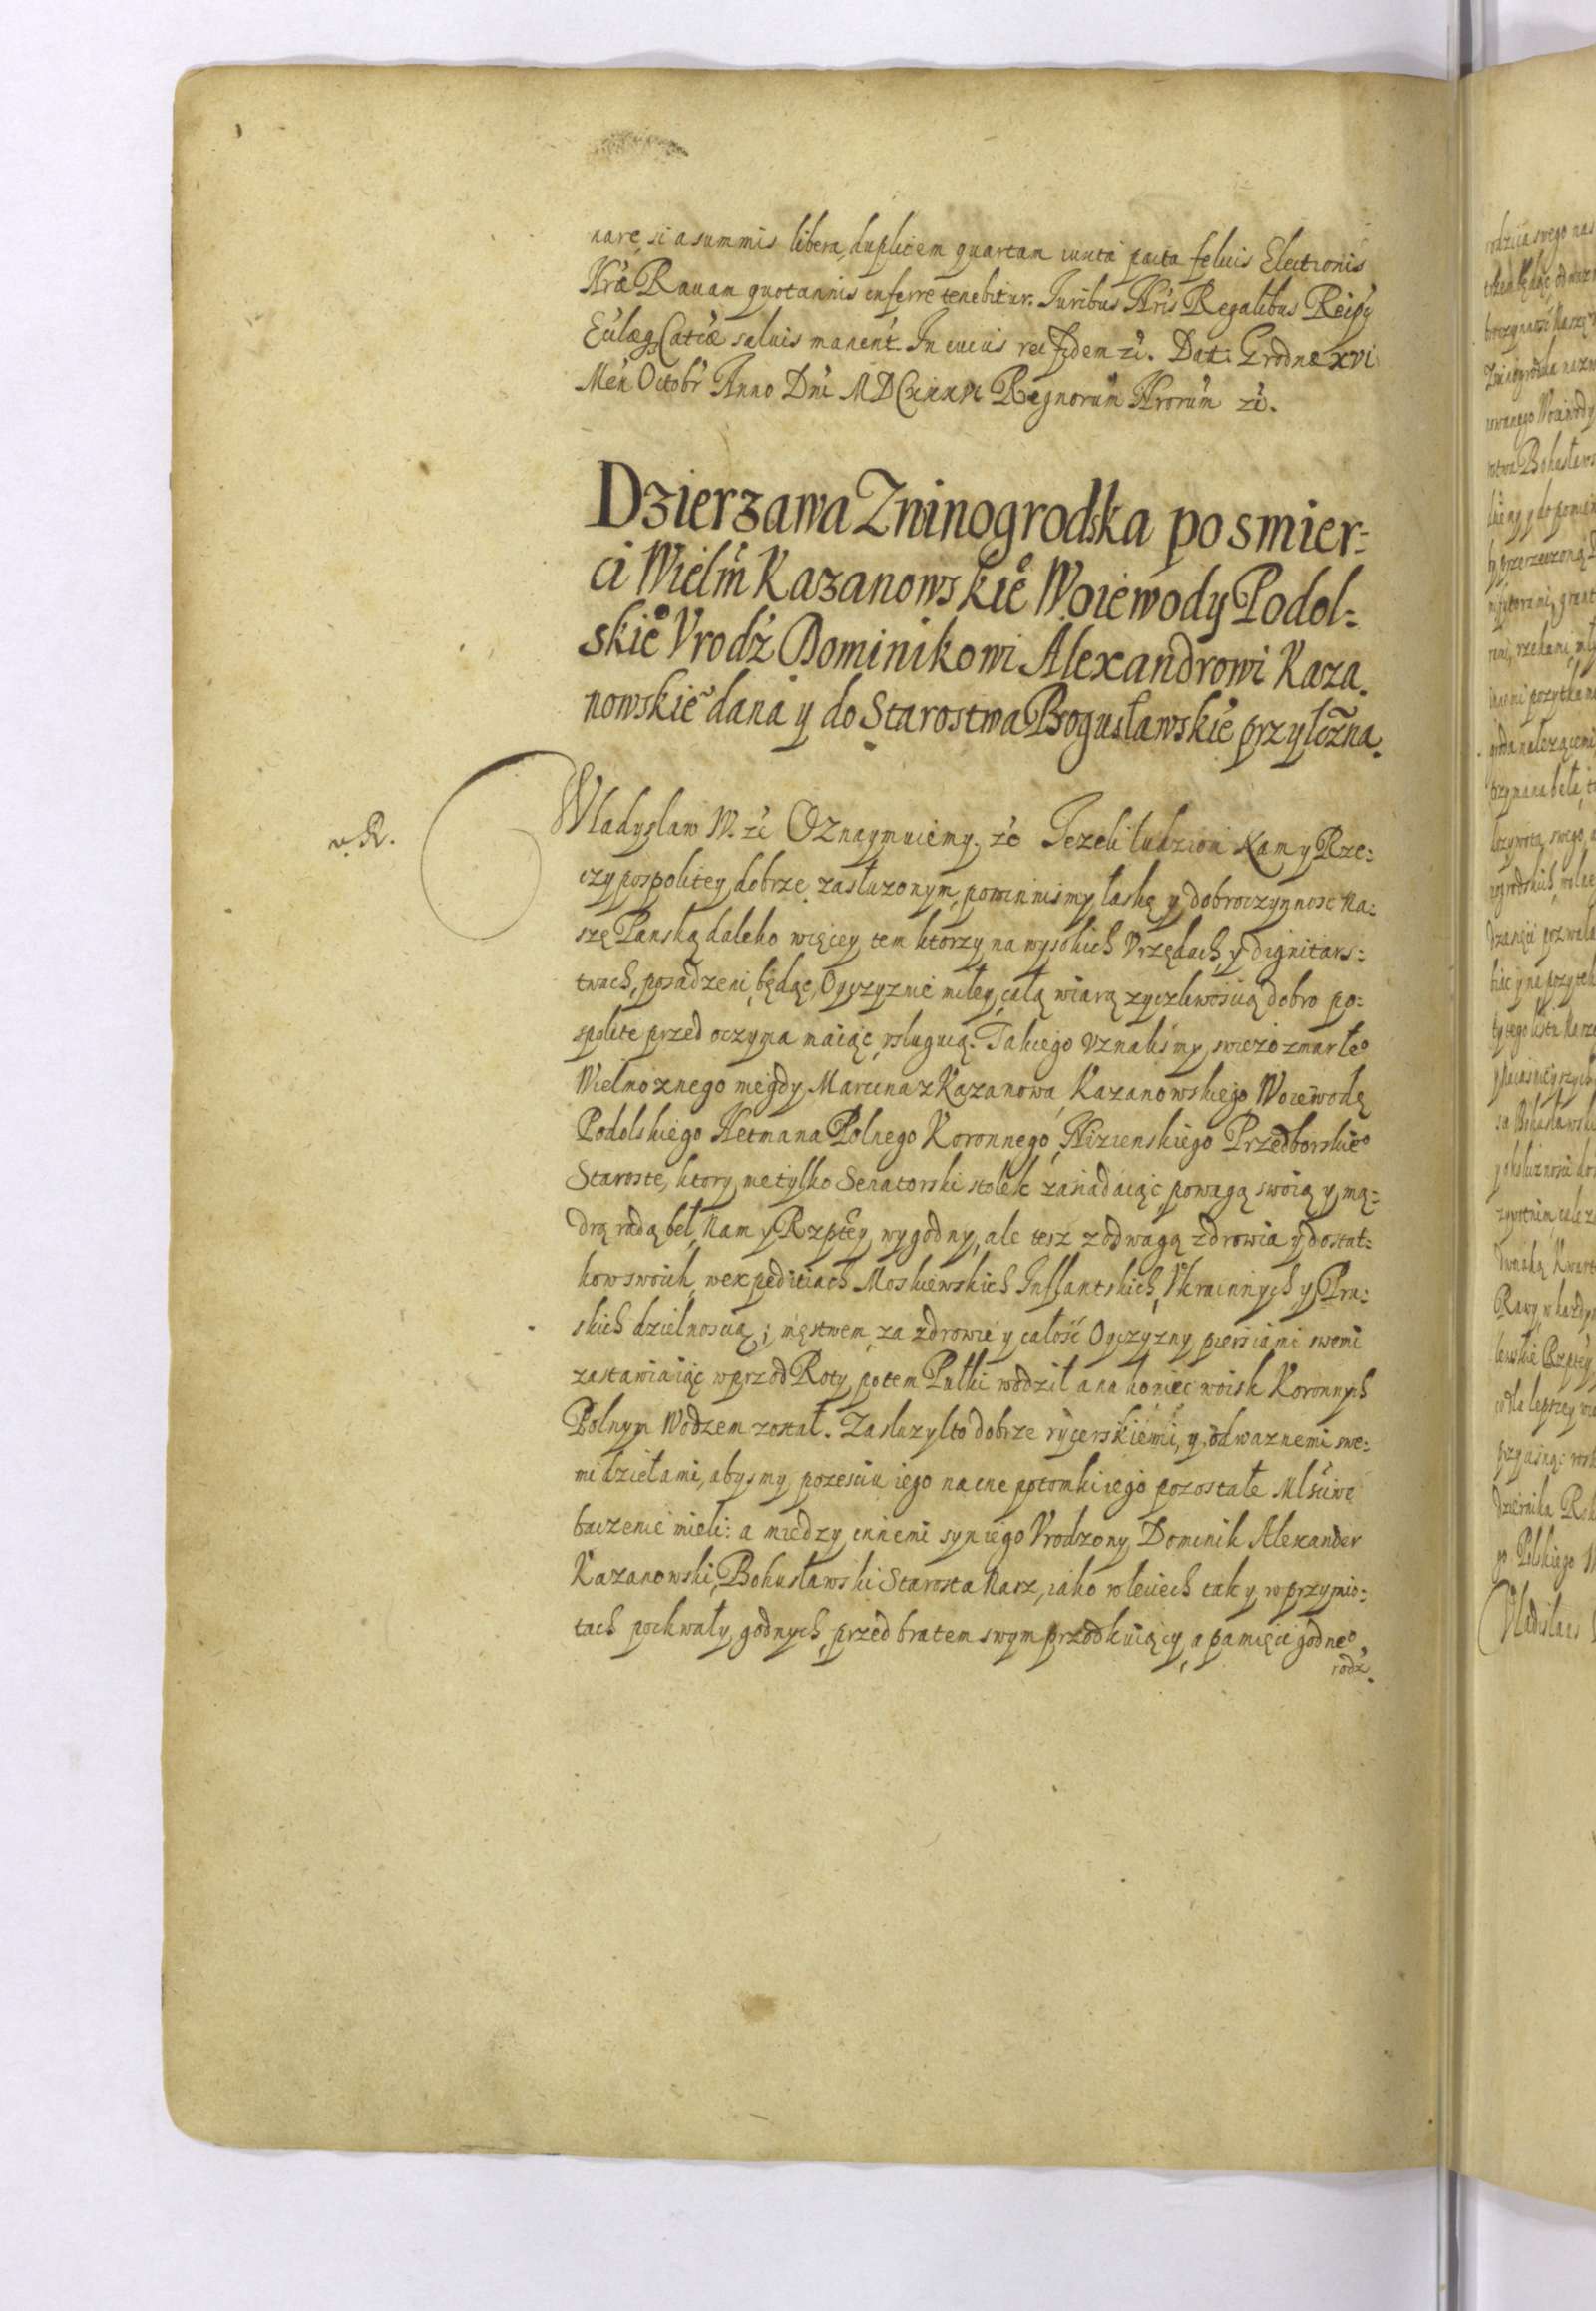 nare, si a summis libera, duplicem quartam iuxta pacta felicis Electionis
Nræ Rauam quotannis inferre tenebitur. Iuribus Nris Regalibus Reipu
Eccleæq Catcæ saluis manent. In cuius rei fidem ze. Dat: Grodnæ XVI
Men Octobr Anno Dni MDCXXXVI Regnorum Nrorum ze.
Dzierzawa Zwinogrodska po smier:
ci Wielm Kazanowskie Woiewody Podol:
skie Vrodz Dominikowi Alexandrowi Kaza.
nowskie dana y do Starostwa Bogusławskie przyłczna.
v. R.
Wladyslaw IV. ze Oznaymuiemy. ze Iezeli ludziom Nam y Rze:
czypospolitey dobrze zasłuzonym, powinnismy łaskę y dobroczynnosc Na:
szę Panską daleko więcey tem ktorzy na wysokich Vrzędach y dignitars:
twach, posadzeni będąc, Oyczyznie miłey, całą wiarą zyczliwoscią dobro po:
spolite przed oczyma maiąc, vsługuią. Takiego vznalismy swiezo zmarłeo
Wielmoznego niegdy Marcina z Kazanowa Kazanowskiego Woiewodę
Podolskiego Hetmana Polnego Koronnego, Nizienskiego Przedborskieo
Staroste, ktory nietylko Senatorski stołek zasiadaiąc powagą swoią y mą:
drą radą beł, Nam y Rzptey wygodny, ale tesz z odwagą zdrowia y dostat:
kow swoich, w expeditiach Moskiewskich Inflantskich, Vkrainnych y Pru:
skich dzielnoscią; męstwem, za zdrowie y całość Oyczyzny piersiami swemi
zastawiaiąc wprzod Roty, potem Pułki wodził a na koniec woisk Koronnych
Polnym Wodzem został. Zasłuzył to dobrze rycerskiemi, y odwaznemi swe:
mi dziełami, abysmy pozesciu iego na cne potomki iego pozostałe Mlsciwe
baczenie mieli: a miedzy innemi syn iego Vrodzony Dominik Alexander
Kazanowski, Bohusławski Starosta Nasz, iako w leciech tak y w przymio:
tach pochwały godnych, przed bratem swym przodkuiący, a pamięci godneo
rodz.